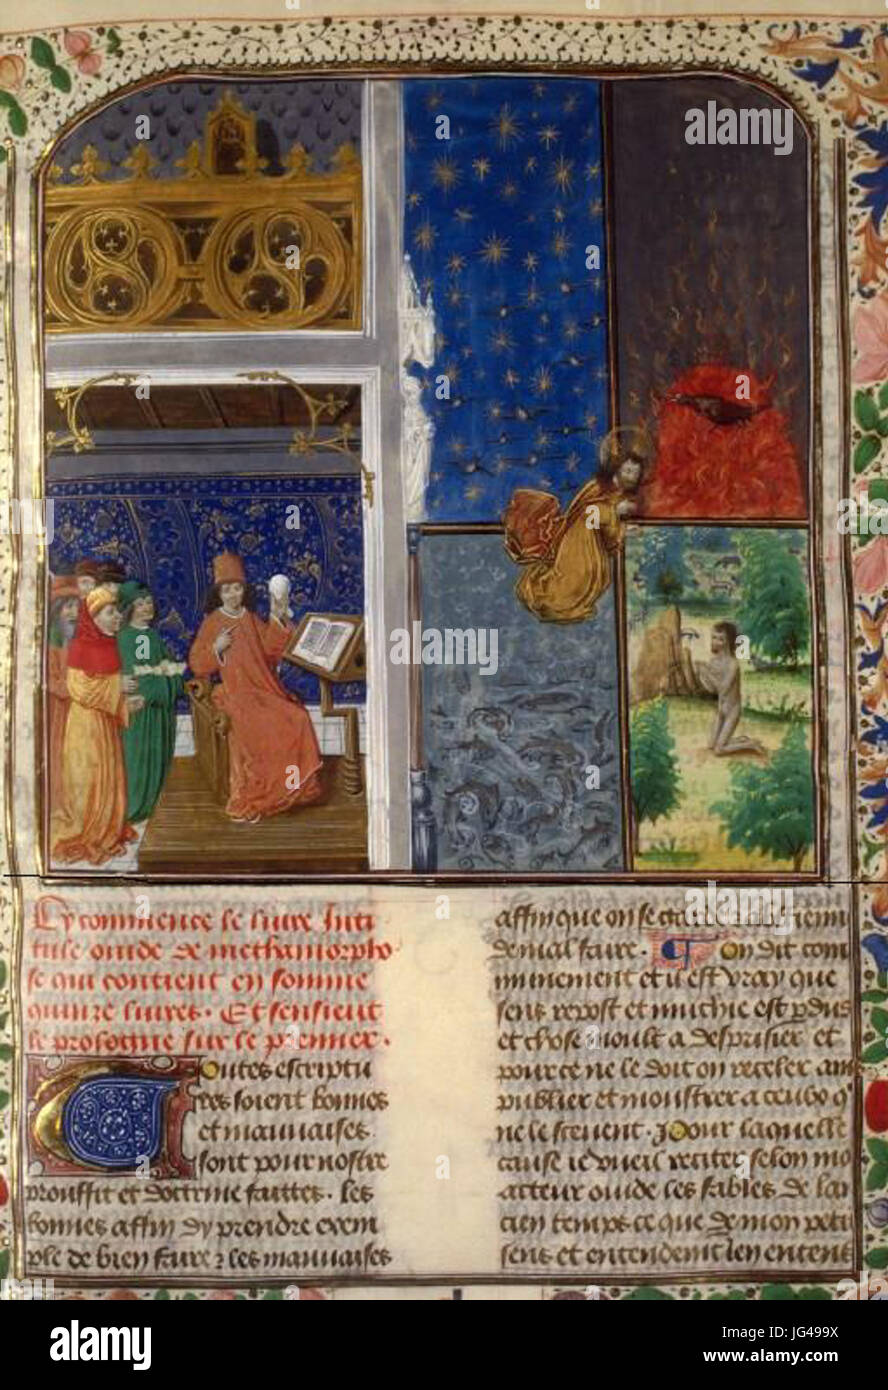 Cy commence le livre Inti
tule ouide de methamorpho
se qui contient en somme
quinze liures · Et sensieut
le prologue sur le premier ·
Toutes escriptu
res soient bonnes
et mauuaises
sont pour nostre
prouffit et doctrine faittes · les
bonnes affin dy prendre exem
ple de bien faire ⁊ les mauuaises
affin que on se garde ⁊
de mal faire · On dit com
munement et il est vray que
sens repost et muchie est perdus
et chose moult a desprisier et
pour ce ne le doit on receler ains
publier et monstrer a ceulx q'
ne le sceuent · Pour laquelle
cause ie vueil reciter selon mo
acteur ouide les fables de lan
cien temps ce que de mon petit
sens et entendemt Jen entens
a
alamy
alamy stock photo
a alamy
Image ID: JG499X
www.alamy.com